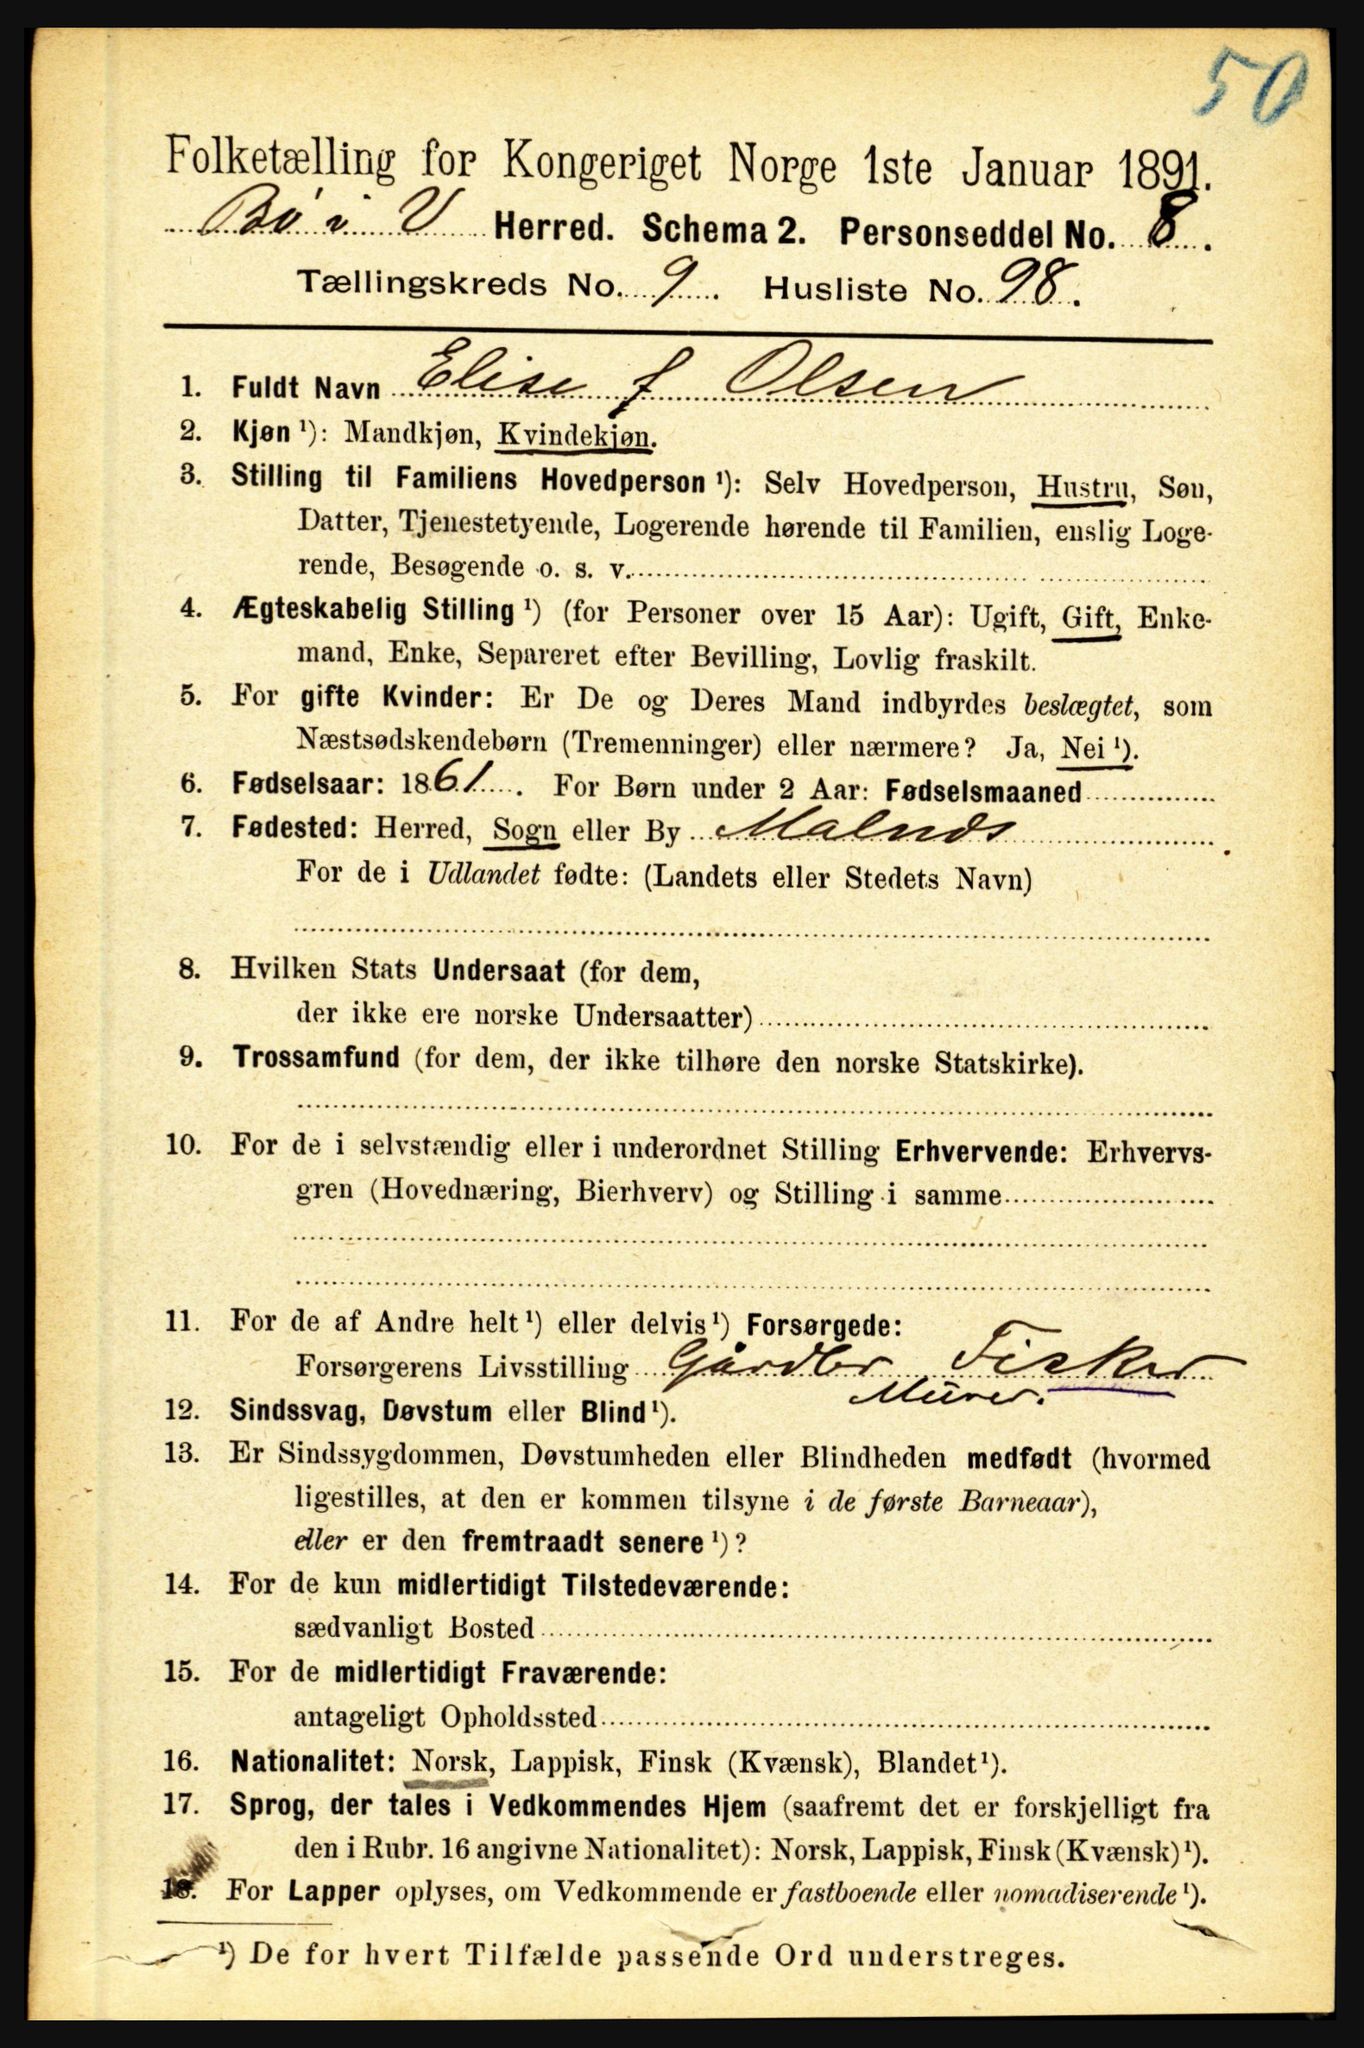 50
Folketælling for Kongeriget Norge 1ste Januar 1891.
Bø i V Herred. Schema 2. Personseddel No. 8.
Tællingskreds No. 9. Husliste No. 98.
1. Fuldt Navn Elise f Olsen
2. Kjøn ¹): Mandkjøn, Kvindekjøn.
3. Stilling til Familiens Hovedperson ¹): Selv Hovedperson, Hustru, Søn,
Datter, Tjenestetyende, Logerende hørende til Familien, enslig Loge-
rende, Besøgende o. s. v.
4. Ægteskabelig Stilling ¹) (for Personer over 15 Aar): Ugift, Gift, Enke-
mand, Enke, Separeret efter Bevilling, Lovlig fraskilt.
5. For gifte Kvinder: Er De og Deres Mand indbyrdes beslægtet, som
Næstsødskendebørn (Tremenninger) eller nærmere? Ja, Nei ¹).
6. Fødselsaar: 1861. For Børn under 2 Aar: Fødselsmaaned
7. Fødested: Herred, Sogn eller By Malnds
For de i Udlandet fødte: (Landets eller Stedets Navn)
8. Hvilken Stats Undersaat (for dem,
der ikke ere norske Undersaatter)
9. Trossamfund (for dem, der ikke tilhøre den norske Statskirke).
10. For de i selvstændig eller i underordnet Stilling Erhvervende: Erhvervs-
gren (Hovednæring, Bierhverv) og Stilling i samme
11. For de af Andre helt ¹) eller delvis ¹) Forsørgede:
Forsørgerens Livsstilling Gårdbr Fisker
Murer.
12. Sindssvag, Døvstum eller Blind ¹).
13. Er Sindssygdommen, Døvstumheden eller Blindheden medfødt (hvormed
ligestilles, at den er kommen tilsyne i de første Barneaar),
eller er den fremtraadt senere ¹)?
14. For de kun midlertidigt Tilstedeværende:
sædvanligt Bosted
15. For de midlertidigt Fraværende:
antageligt Opholdssted
16. Nationalitet: Norsk, Lappisk, Finsk (Kvænsk), Blandet ¹).
17. Sprog, der tales i Vedkommendes Hjem (saafremt det er forskjelligt fra
den i Rubr. 16 angivne Nationalitet): Norsk, Lappisk, Finsk (Kvænsk) ¹).
18. For Lapper oplyses, om Vedkommende er fastboende eller nomadiserende ¹).
¹) De for hvert Tilfælde passende Ord understreges.